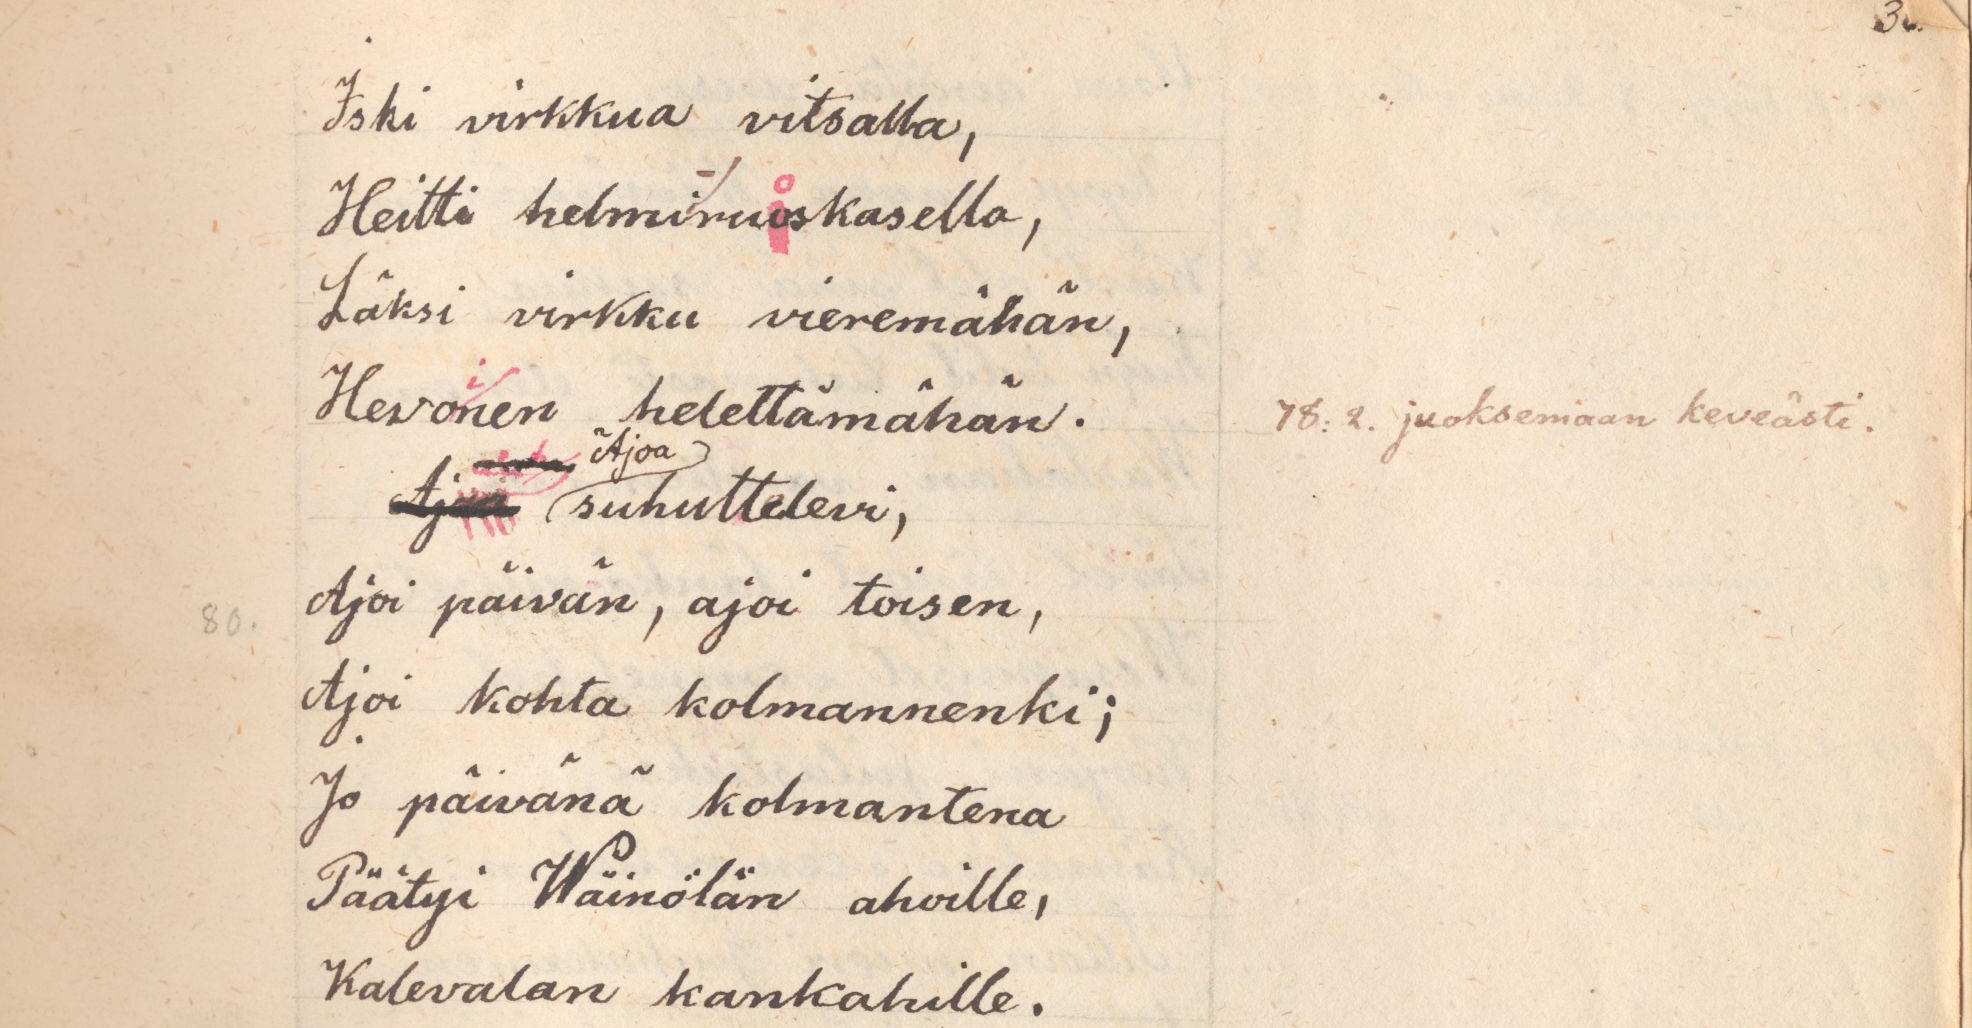 3
Iski virkkua vitsalla,
Heitti helmiruoskasella,
Läksi virkku vieremähän,
i
Hevonen helettämähän.
78: 2. juoksemaan keveästi.
Ajoa
Ajaa suhuttelevi,
80. Ajoi päivän, ajoi toisen,
Ajoi kohta kolmannenki;
Jo päivänä kolmantena
Päätyi Wäinölän ahoille,
Kalevalan kankahille.